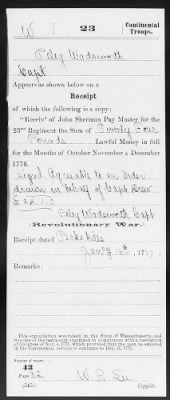 W | 23 | Continental Troops.
Peleg Wadsworth
Capt
Appears as shown below on a
Receipt
of which the following is a copy:
"Receivd of John Sherman Pay Master for the
23rd Regiment the Sum of Twenty Four
Pounds Lawful Money in full
for the Months of October November & December
1776
signed Agreeable to an Order
drawn in behalf of Capt
£24.0.0
Peleg Wadsworth Capt
Revolutionary War.
Receipt dated Peekskill
Jany 10th, 1777.
Remarks:
This organization was raised in the State of Massachusetts and
Number of record:
43
Part 22
(545)
W. E. Lee
Copyist.